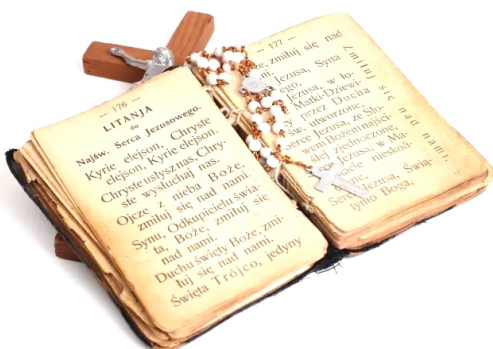 — 176 —
LITANJA
do
Najśw. Serca Jezusowego.
Kyrie elejson, Chryste
elejson, Kyrie elejson.
Chryste usłysz nas, Chry-
ste wysłuchaj nas.
Ojcze z nieba Boże,
zmiłuj się nad nami.
Synu, Odkupicielu świa-
ta, Boże, zmiłuj się
nad nami.
Duchu święty Boże, zmi-
łuj się nad nami.
Święta Trójco, jedyny
— 177 —
zmiłuj się nad
Jezusa, Syna
ego,
Jezusa, w ło-
Matki-Dziewi-
przez Ducha
św. utworzone,
Serce Jezusa, ze Sło-
wem Bożem najści-
ślej zjednoczone,
Jezusa, w Ma-
nieskoń-
Serce Jezusa, Świą-
tynio Boga,
zmiłuj się nad nami.